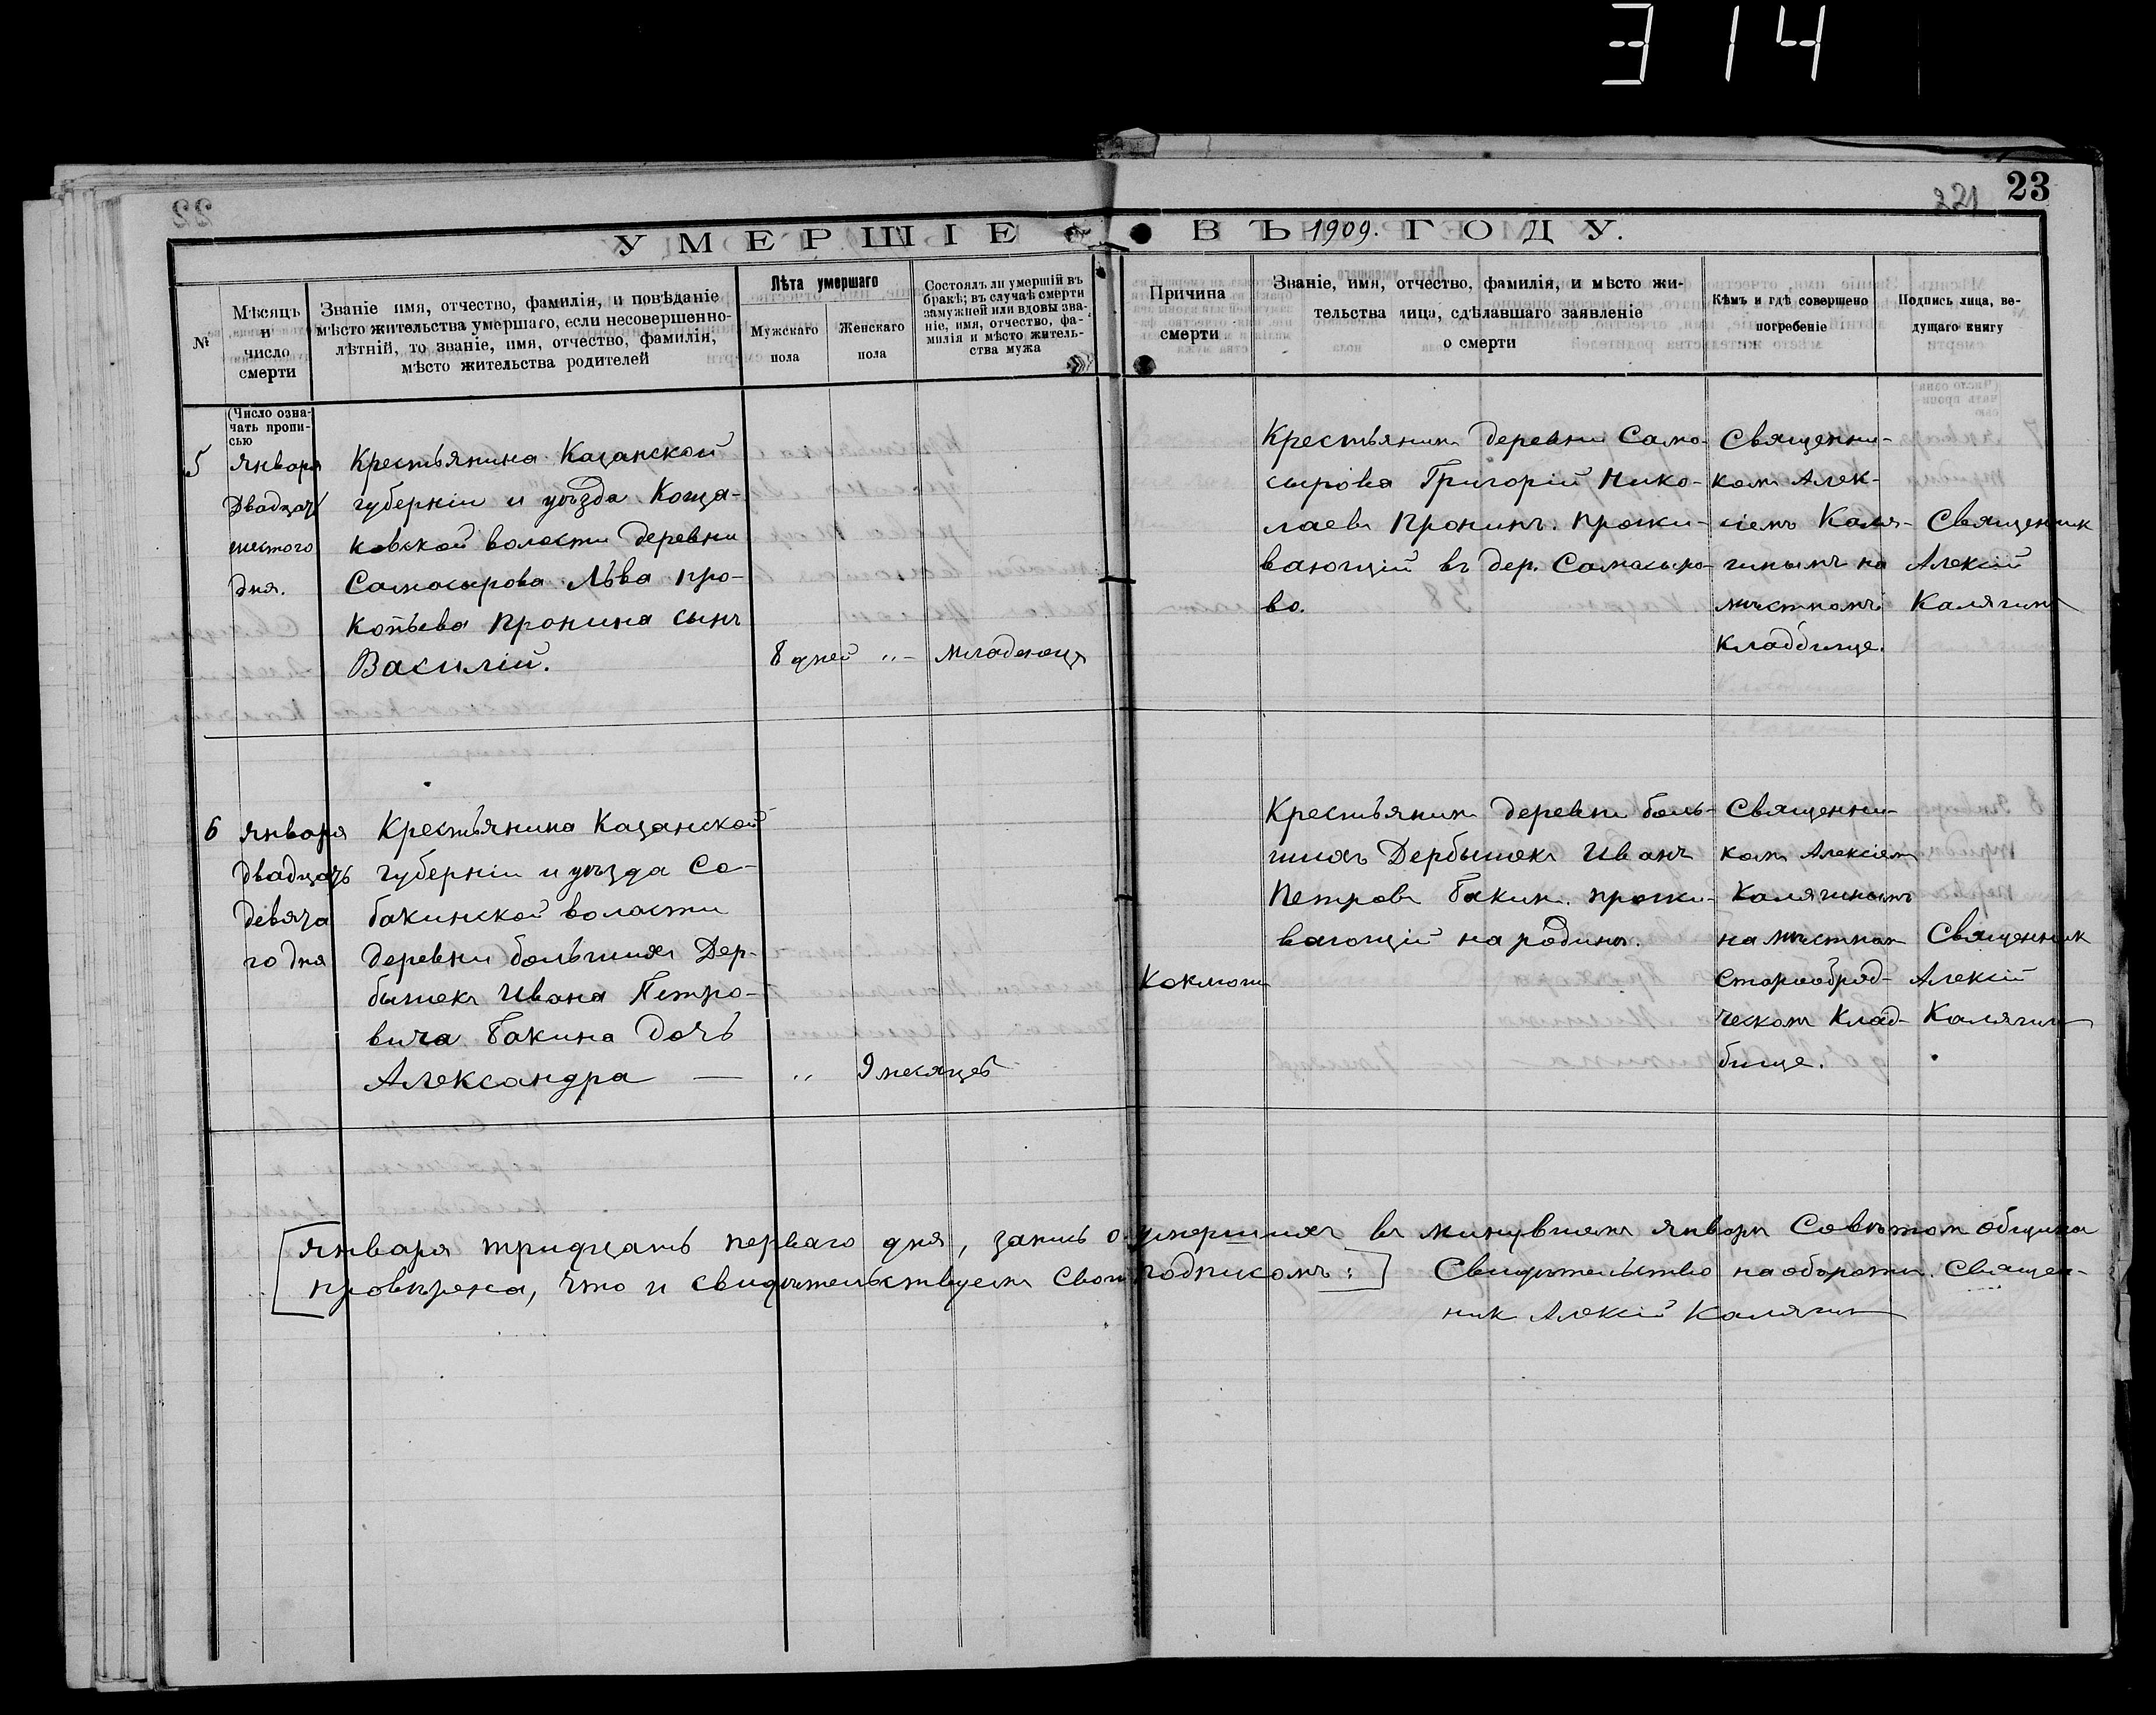 314
22
221 23
УМЕРШІЕ ВЪ 1909. ГОДУ.
№
Мѣсяцъ
и
число
смерти
Званіе имя, отчество, фамилія, и повѣданіе
мѣсто жительства умершаго, если несовершенно-
лѣтній, то званіе, имя, отчество, фамилія,
мѣсто жительства родителей
Лѣта умершаго
Мужскаго
пола
Женскаго
пола
Состоялъ ли умершій въ
бракѣ; въ случаѣ смерти
замужней или вдовы зва-
ніе, имя, отчество, фа-
милія и мѣсто житель-
ства мужа
Причина
смерти
Званіе, имя, отчество, фамилія, и мѣсто жи-
тельства лица, сдѣлавшаго заявленіе
о смерти
Кѣмъ и гдѣ совершено
погребеніе
Подпись лица, ве-
дущаго книгу
(Число озна-
чать пропи-
сью
5
Января
Двадцать
шестого
дня.
Крестьянина Казанской
губерніи и уѣзда Коща-
ковской волости деревни
Самосырова Льва Про-
копьева Пронина сынъ
Василій.
8 дней „ -
младенецъ
Крестьянин деревни Само-
сырова Григорій Нико-
лаевъ Пронинъ. прожи-
вающій въ дер. Самосыро-
во.
Священни-
комъ Алек-
сіемъ Каля-
гинымъ на
мѣстномъ
кладбище.
Священник
Алексій
Калягинъ
6
Января
двадцать
девята
го дня
Крестьянина Казанской
губерніи и уѣзда Со-
бакинской волости
деревни большихъ Дер-
бышекъ Ивана Петро-
вича Бакина дочь
Александра —
„ 9 месяцев
Коклюшъ
Крестьянин деревни боль-
шихъ Дербышекъ Иванъ
Петровъ Бакин. прожи-
вающій на родинѣ.
Священни-
комъ Алексіем
Калягинымъ
на мѣстном
старообряд-
ческомъ клад-
бище.
Священник
Алексій
Калягинъ
[Января тридцать перваго дня, запись о умершихъ въ минувшемъ январѣ Совѣтом общины
провѣрена, что и свидѣтельствуетъ своим подписомъ:] Свидѣтельство на оборотѣ. Священ-
ник Алексій Калягин